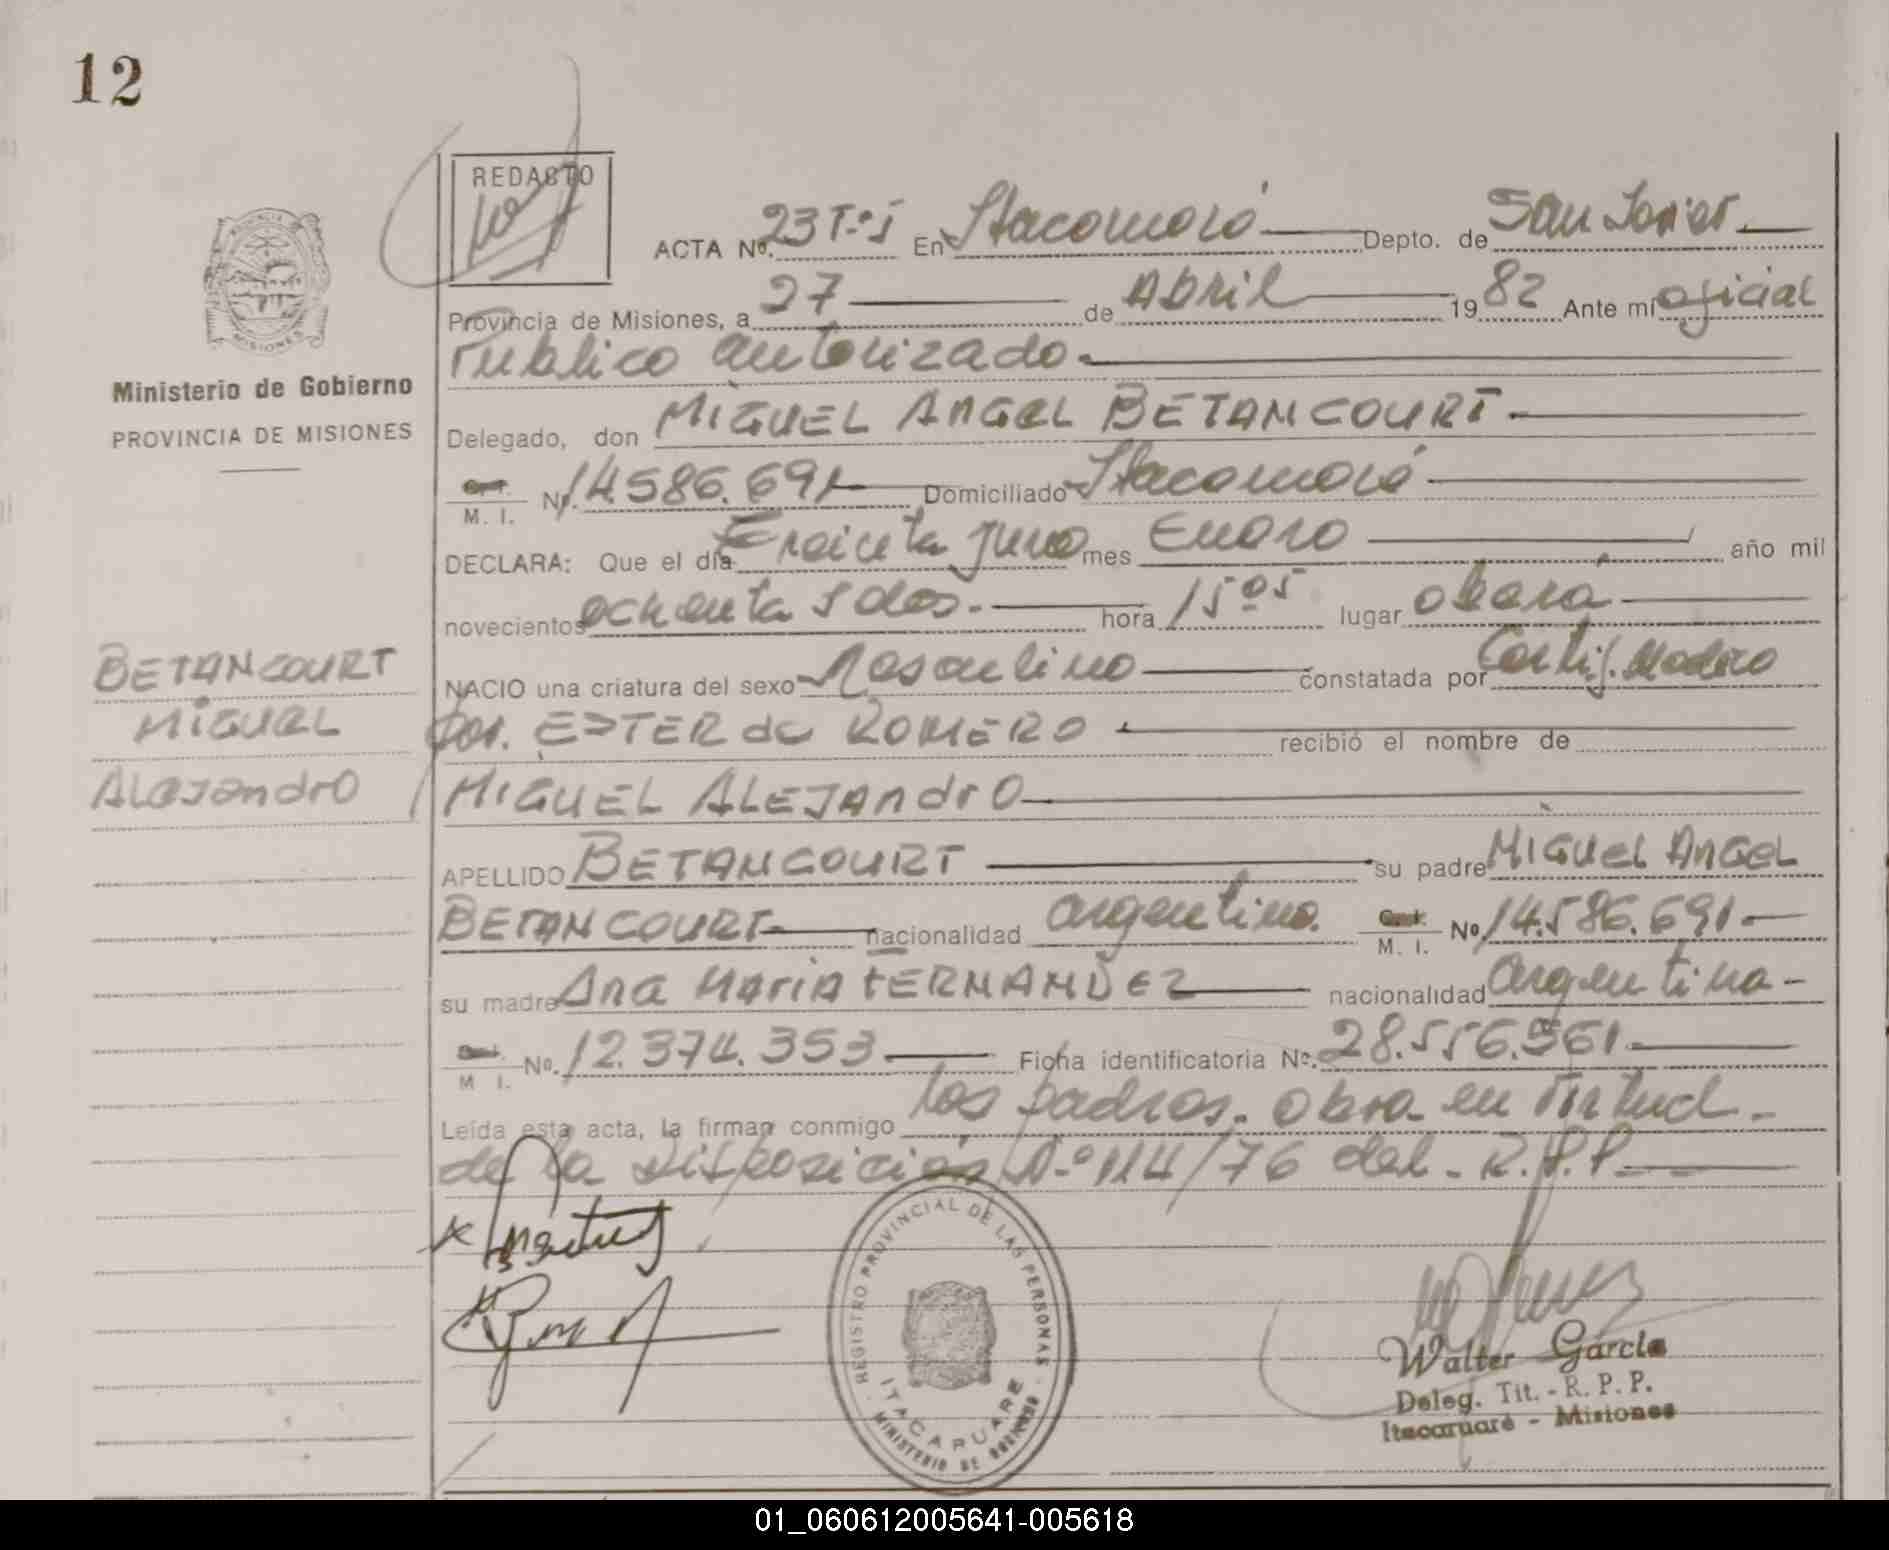 12
REDACTO
ACTA Nº. 23 T-I En Itacaruaré Depto. de San Javier
Provincia de Misiones, a 27 de Abril 1982 Ante mí oficial
Publico autorizado
Ministerio de Gobierno
PROVINCIA DE MISIONES
Delegado, don MIGUEL ANGEL BETANCOURT
M. I. Nº. 14.586.691 Domiciliado Itacaruaré
DECLARA: Que el día Treinta y uno mes Enero año mil
novecientos ochenta y dos. hora 15 05 lugar oberá
BETANCOURT
MIGUEL
ALEJANDRO
NACIO una criatura del sexo Masculino constatada por Certif. Medico
por. ESTER de ROMERO recibió el nombre de
MIGUEL ALEJANDRO
APELLIDO BETANCOURT su padre MIGUEL ANGEL
BETANCOURT nacionalidad argentino. M. I. Nº 14.586.691
su madre Ana María FERNANDEZ nacionalidad argentina
M I. Nº. 12.374.353 Ficha identificatoria Nº. 28.556.561
Leída esta acta, la firman conmigo los padres. Obra en virtud
de la Disposición Nº 114/76 del R.P.P.
REGISTRO PROVINCIAL DE LAS PERSONAS
ITACARUARE
MINISTERIO DE GOBIERNO
Walter García
Deleg. Tit. - R. P. P.
Itacaruaré - Misiones
01_060612005641-005618